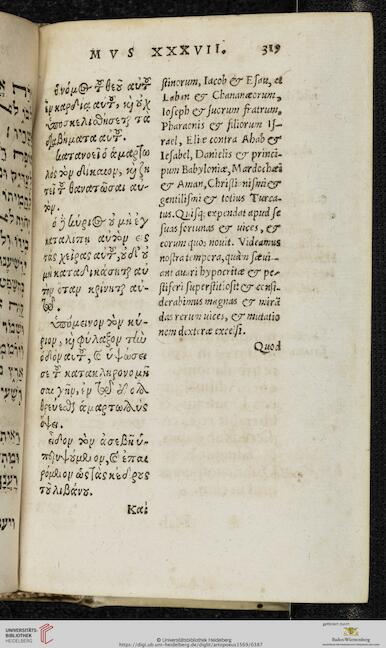 MVS XXXVII. 319
ὁ νόμος τοῦ θεοῦ αὐτοῦ
ἐν καρδίᾳ αὐτοῦ, καὶ οὐχ
ὑποσκελισθήσεται τὰ
διαβήματα αὐτοῦ.
κατανοεῖ ὁ ἁμαρτω
λὸς τὸν δίκαιον, καὶ ζη
τεῖ τοῦ θανατῶσαι αυ
τόν.
ὁ δὲ κύριος οὐ μὴ ἐγ
καταλίπῃ αὐτὸν εἰς
τὰς χεῖρας αὐτοῦ, οὐδ' οὐ
μὴ καταδικάσηται αὐ
τὸν ὅταν κρίνηται αὐ-
τῷ.
ὑπόμεινον τὸν κύ-
ριον, καὶ φύλαξον τὴν
ὁδὸν αὐτοῦ, καὶ ὑψώσει
σε τοῦ κατακληρονομῆ
σαι γῆν, ἐν τῷ ἐξολο
θρεύεσθαι ἁμαρτωλοὺς
ὄψει.
εἶδον τὸν ἀσεβῆ ὑ-
περυψούμενον, καὶ ἐπαι
ρόμενον ὡς τὰς κέδρους
τοῦ λιβάνου.
Καὶ
stinorum, Iacob & Esau, et
Laban & Chananæorum,
Ioseph & suorum fratrum,
Pharaonis & filiorum Is-
rael, Eliæ contra Ahab &
Iesabel, Danielis & princi-
pum Babyloniæ, Mardochæi
& Aman, Christianismi &
gentilismi & totius Turca-
tus. Quisq; expendat apud se
suas fortunas & uices, &
eorum quos nouit. Videamus
nostra tempora, quàm sæui-
ant auari hypocritæ & pe-
stiferi superstitiosi: & consi-
derabimus magnas & mirã
das rerum uices, & mutatio
nem dexteræ excelsi.
Quod
UNIVERSITÄTS-
BIBLIOTHEK
HEIDELBERG
© Universitätsbibliothek Heidelberg
https://digi.ub.uni-heidelberg.de/diglit/artopoeus1569/0387
gefördert durch
Baden-Württemberg